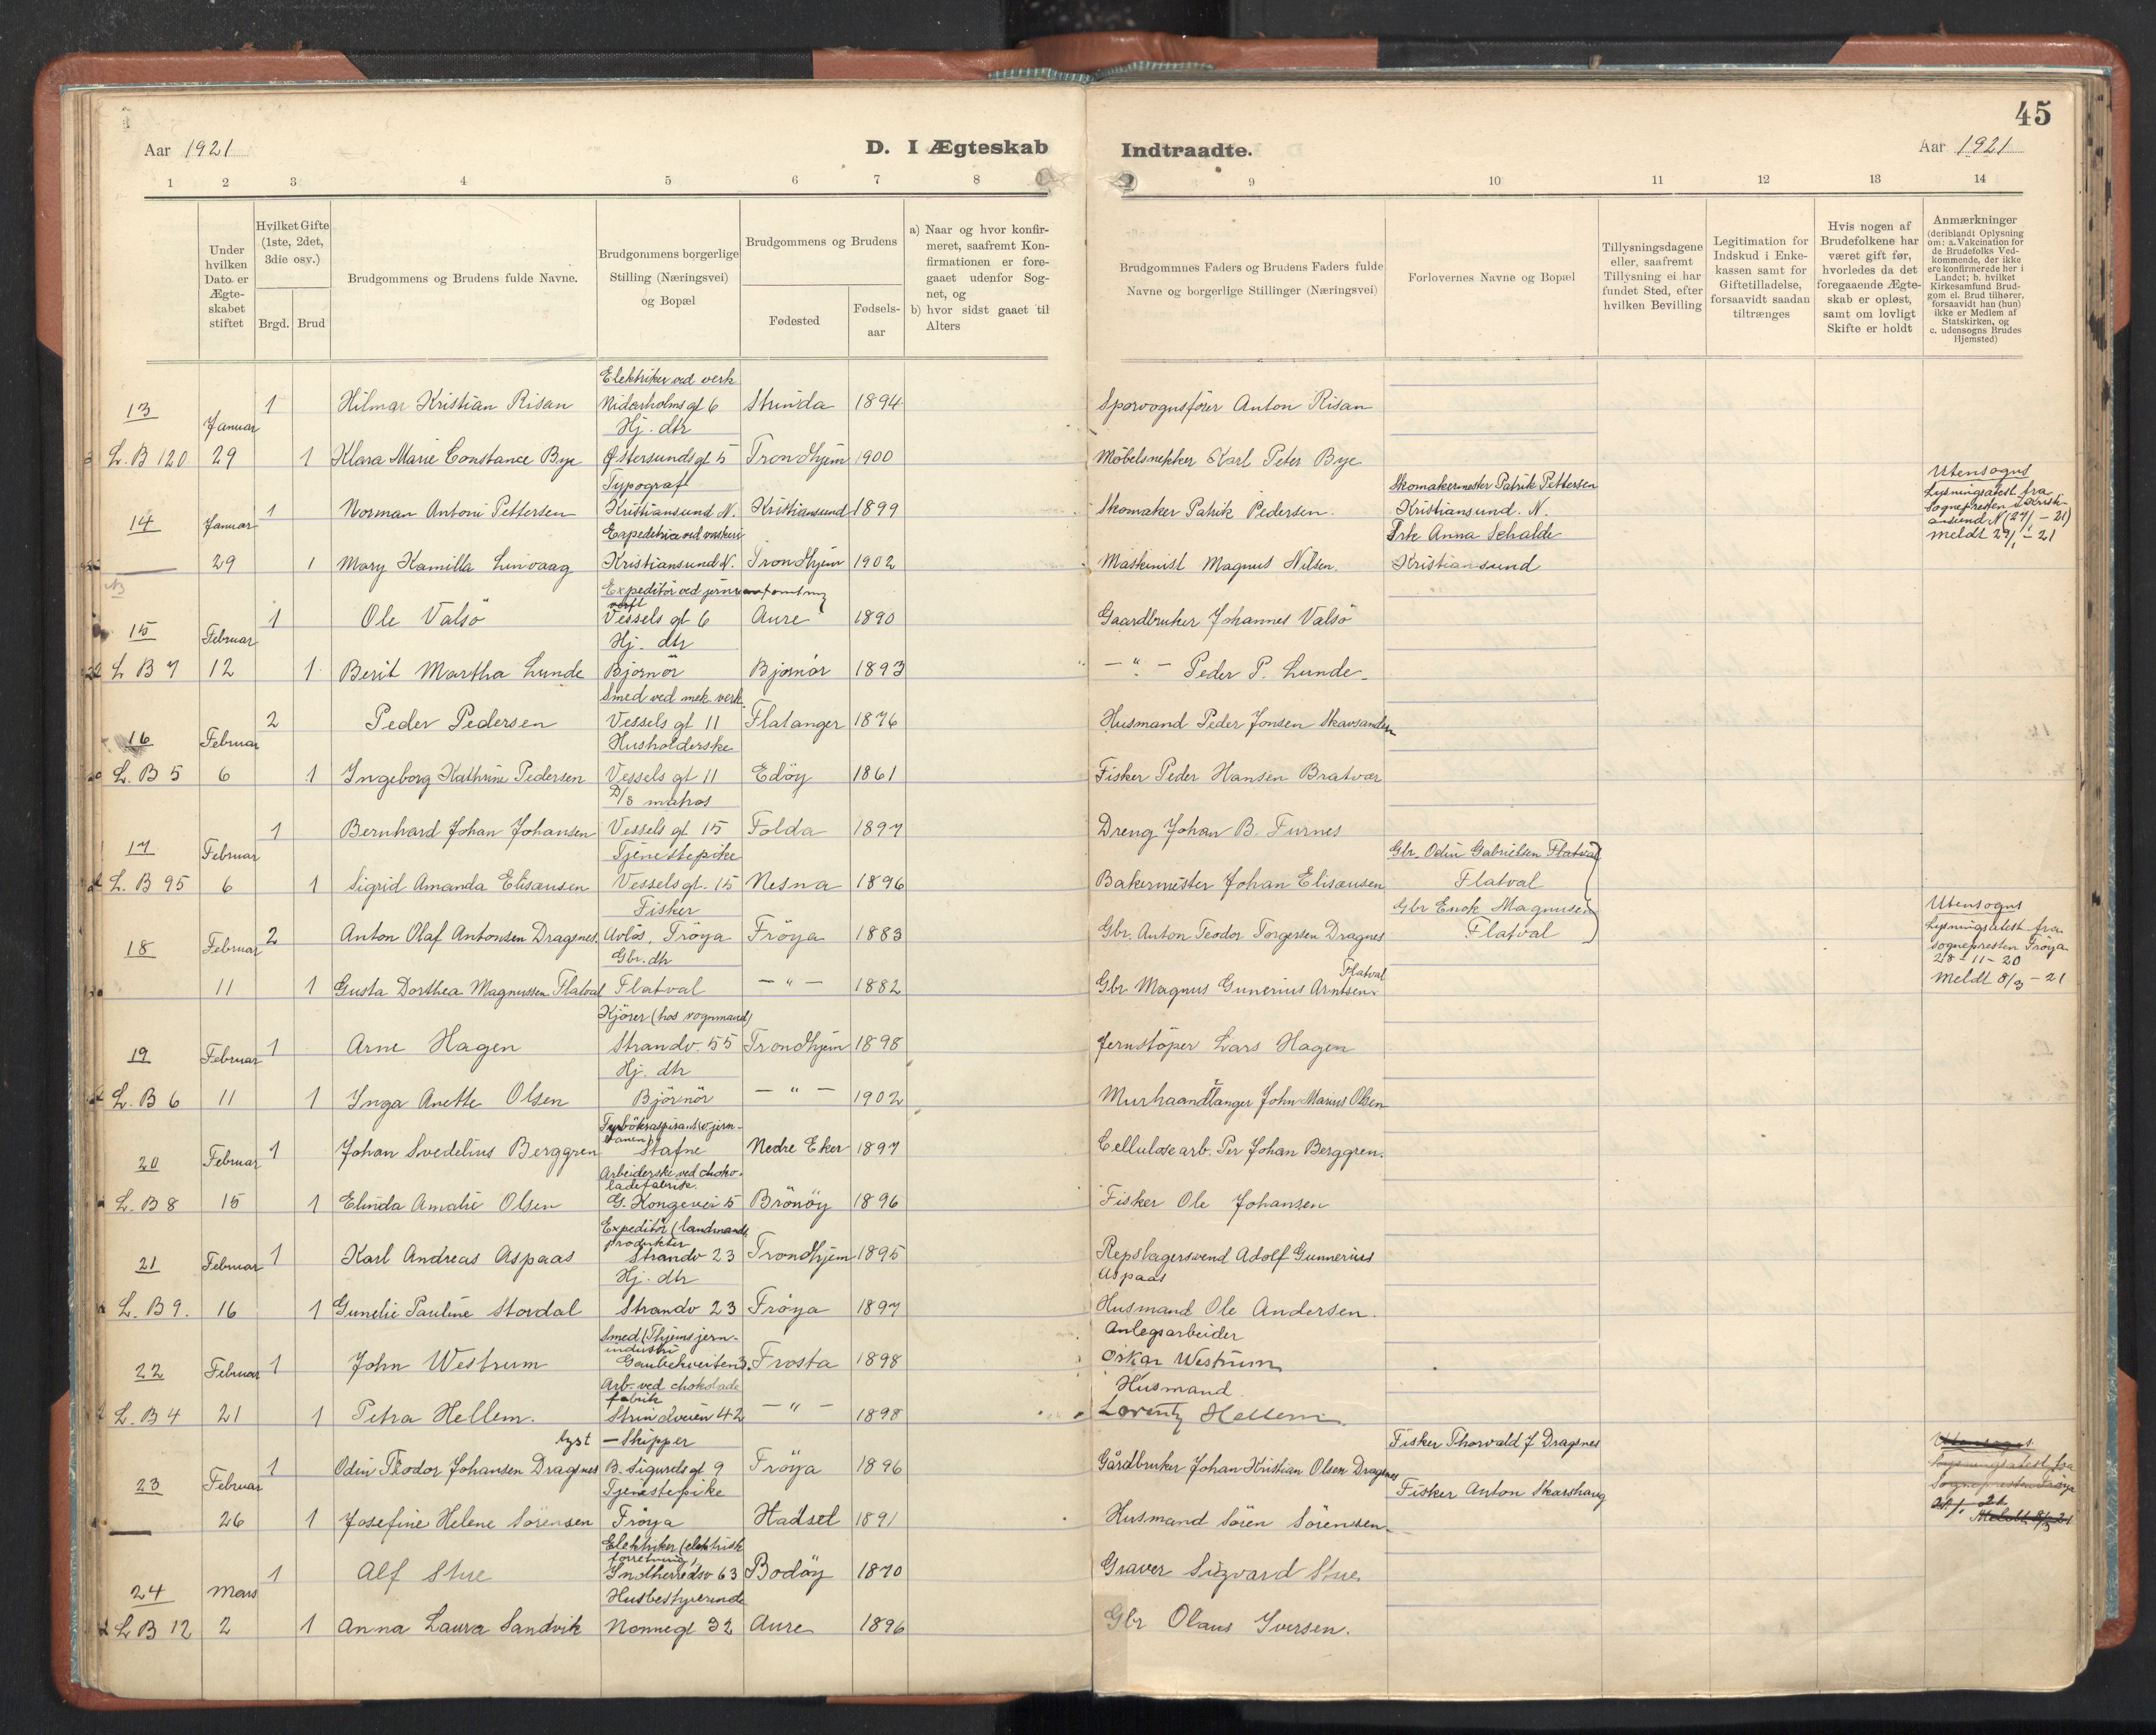 45
Aar 1921
D. I Ægteskab
Indtraadte.
Aar 1921
1 2 3 4 5 6 7 8
9 10 11 12 13 14
Under hvilken Dato er Ægteskabet stiftet
Hvilket Gifte (1ste, 2det, 3die osv.)
Brgd. Brud
Brudgommens og Brudens fulde Navne.
Brudgommens borgerlige Stilling (Næringsvei) og Bopæl
Brudgommens og Brudens
Fødested
Fødselsaar
a) Naar og hvor konfirmeret, saafremt Konfirmationen er foregaaet udenfor Sognet, og
b) hvor sidst gaaet til Alters
Brudgommnes Faders og Brudens Faders fulde Navne og borgerlige Stillinger (Næringsvei)
Forlovernes Navne og Bopæl
Tillysningsdagene eller, saafremt Tillysning ei har fundet Sted, efter hvilken Bevilling
Legitimation for Indskud i Enkekassen samt for Giftetilladelse, forsaavidt saadan tiltrænges
Hvis nogen af Brudefolkene har været gift før, hvorledes da det foregaaende Ægteskab er opløst, samt om lovligt Skifte er holdt
Anmærkninger (deriblandt Oplysning om: a. Vakcination for de Brudefolks Vedkommende, der ikke ere konfirmerede her i Landet; b. hvilket Kirkesamfund Brudgom el. Brud tilhører, forsaavidt han (hun) ikke er Medlem af Statskirken, og c. udensogns Brudes Hjemsted)
Elektriker ved verk
13 Januar 1 Hilmar Kristian Risan Nidarholms gt 6 Strinda 1894 Sporvognsfører Anton Risan
Hj. dtr
L. B 120 29 1 Klara Marie Constance Bye Østersunds gt 5 Trondhjem 1900 Møbelsnekker Karl Peter Bye
Typograf Skomakermester Patrik Pettersen Utensogns
14 Januar 1 Norman Antoni Pettersen Kristiansund N. Kristiansund 1899 Skomaker Patrik Pedersen. Kristiansund. N. Lysningsatest fra
Sognepresten i Kristiansund N (27/1 - 21)
Expeditrice ved vaskeri Frk Anna Schalde meldt 29/1 - 21
29 1 Mary Kamilla Linvaag Kristiansund N. Trondhjem 1902 Maskinist Magnus Nilsen. Kristiansund
Expeditör ved
15 Februar 1 Ole Valsö Vessels gt 6 Aure 1890 Gaardbruker Johannes Valsö
Hj. dtr
L B 7 12 1 Berit Martha Lunde Bjørnör Bjørnör 1893 — " — Peder P. Lunde
Smed ved mek. verk.
16 Februar 2 Peder Pedersen Vessels gt 11 Flatanger 1876 Husmand Peder Jonsen Skavsanden
Husholderske
L. B 5 6 1 Ingeborg Kathrine Pedersen Vessels gt 11 Edöy 1861 Fisker Peder Hansen Bratvær
D/S matros
17 Februar 1 Bernhard Johan Johansen Vessels gt 15 Folda 1897 Dreng Johan B. Furnes
Tjenestepike Gbr. Odin Gabrielsen Flatval
L. B 95 6 1 Sigrid Amanda Elisæusen Vessels gt. 15 Nesna 1896 Bakermester Johan Elisæusen Flatval
Fisker Gbr Enok Magnusen Utensogns
18 Februar 2 Anton Olaf Antonsen Dragsnes. Avløs, Fröya Fröya 1883 Gbr. Anton Teodor Torgersen Dragnes Flatval Lysningsatest fra
sognepresten Fröya
Gbr. dtr 28-11-20
11 1 Gusta Dorthea Magnussen Flatval Flatval — " — 1882 Gbr Magnus Gunerius Arntsen Flatval Meldt 8/3 - 21
Kjörer (hos vognmand)
19 Februar 1 Arne Hagen Strandv. 55 Trondhjem 1898 Jernstöper Lars Hagen
Hj. dtr
L. B 6 11 1 Inga Anette Olsen Björnör — " — 1902 Murhaandtlanger John Marius Olsen
20 Februar 1 Johan Svedelius Berggren Stafne Nedre Eker 1897 Cellulosearb. Per Johan Berggren.
Arbeiderske ved chokoladefabrik.
L. B 8 15 1 Elinda Amalie Olsen G. Kongevei 5 Brönöy 1896 Fisker Ole Johansen
Expeditör (landmands produkter
21 Februar 1 Karl Andreas Aspaas Strandv 23 Trondhjem 1895 Repslagersvend Adolf Gunnerius Aspaas
Hj. dtr
L. B 9. 16 1 Gunelie Pauline Stordal Strandv 23 Fröya 1897 Husmand Ole Andersen.
Smed (Thjems jernindustri Anlegsarbeider
22 Februar 1 John Westrum Gaubekveiten 3. Frosta 1898 Oskar Westrum
Arb. ved chokolade fabrik Husmand
L. B 4 21 1 Petra Hellem. Strindveien 42 — " — 1898 Lorentz Hellem
lyst — Skipper Fisker Thorvald J Dragsnes Utensogns
23 Februar 1 Odin Teodor Johansen Dragsnes B. Sigurds gt 9 Fröya 1896 Gårdbruker Johan Kristian Olsen Dragnes Lysningsatest fra
Tjenestepike Fisker Anton Skarshaug Sognepresten Fröya
26 1 Josefine Helene Sörensen Fröya Hadsel 1891 Husmand Sören Sörensen Meldt 8/3 21
Elektriker (elektrisk forretning)
24 Mars 1 Alf Stue Indherredsv 63 Bodöy 1870 Graver Sigvard Stue
Husbestyrerinde
L B 12 2 1 Anna Laura Sandvik Nonnegt 32 Aure 1896 Gbr Olaus Iversen.